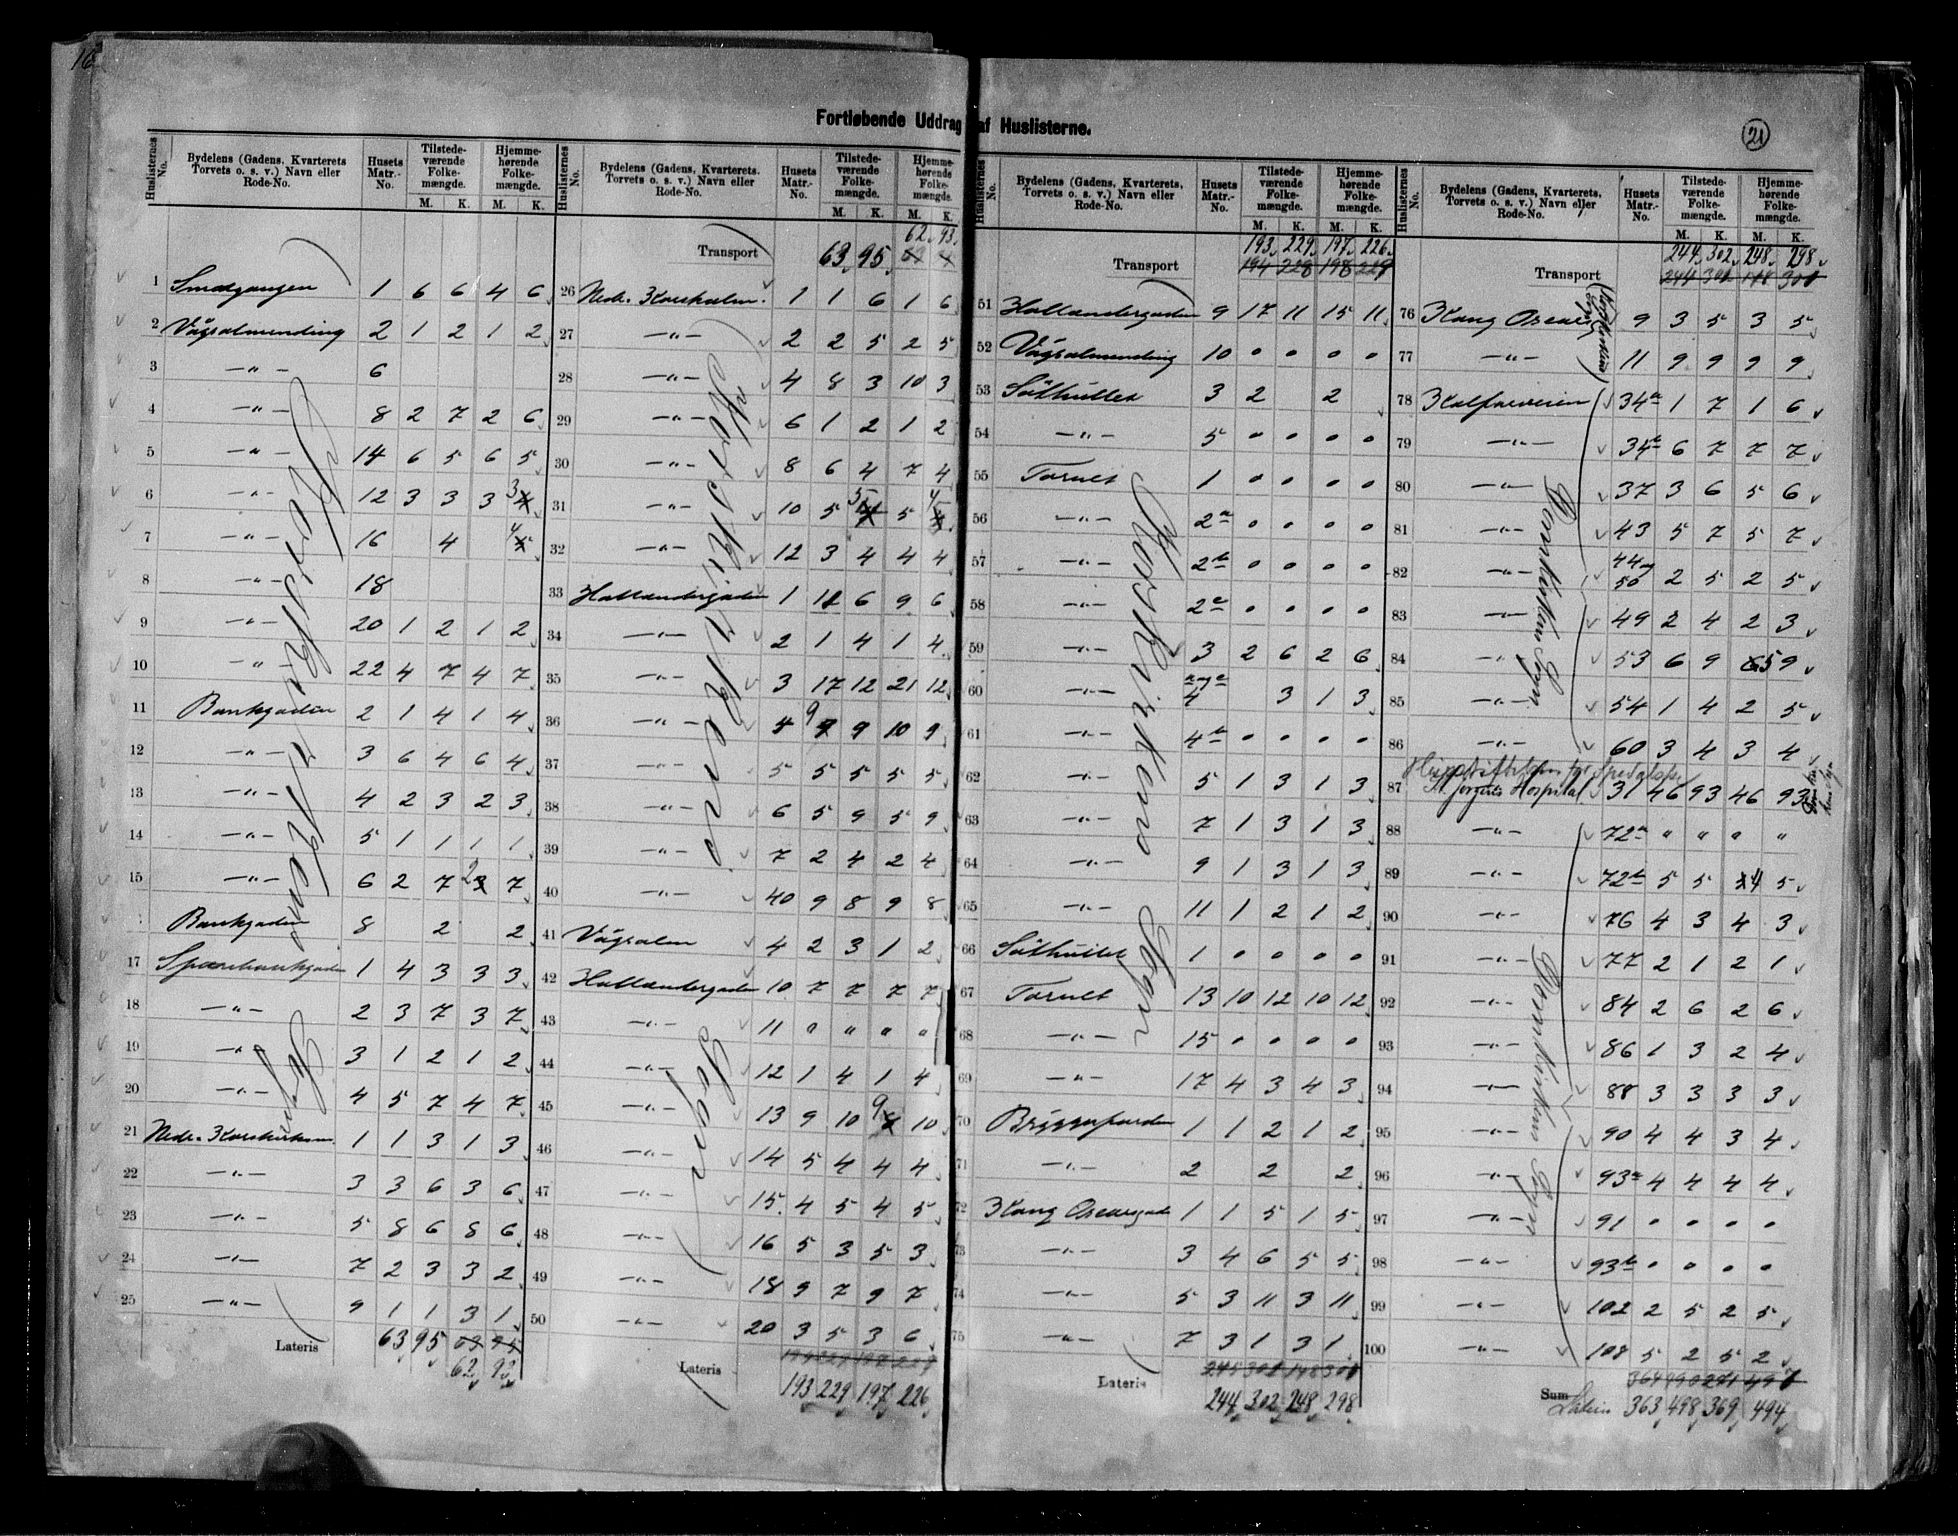 16
Fortløbende Uddrag af Huslisterne.
21
Huslisternes No. | Bydelens (Gadens, Kvarterets Torvets o. s. v.) Navn eller Rode-No. | Husets Matr.-No. | Tilstede-værende Folke-mængde. M. K. | Hjemme-hørende Folke-mængde. M. K.
1 Smedgangen 1 6 6 4 6
2 Vågsalmending 2 1 2 1 2
3 —"— 6
4 —"— 8 2 7 2 6
5 —"— 14 6 5 6 5
6 —"— 12 3 3 3 3
7 —"— 16 4 4
8 —"— 18
9 —"— 20 1 2 1 2
10 —"— 22 4 7 4 7
11 Bankgaden 2 1 4 1 4
12 —"— 3 6 4 6 4
13 —"— 4 2 3 2 3
14 —"— 5 1 1 1 1
15 —"— 6 2 7 2 7
Bankgaden 8 2 2
17 Sparebankgaden 1 4 3 3 3
18 —"— 2 3 7 3 7
19 —"— 3 1 2 1 2
20 —"— 4 5 7 4 7
21 Nedr. Korskirkealm. 1 1 3 1 3
22 —"— 3 3 6 3 6
23 —"— 5 8 6 8 6
24 —"— 7 2 3 3 2
25 —"— 9 1 1 3 1
Korskirkens Sogn
Lateris 63 95 63 95
62 93
Huslisternes No. | Bydelens (Gadens, Kvarterets. Torvets o. s. v.) Navn eller Rode-No. | Husets Matr.-No. | Tilstede-værende Folke-mængde. M. K. | Hjemme-hørende Folke-mængde. M. K.
62 93
Transport 63 95
26 Nedr. Korskalm. 1 1 6 1 6
27 —"— 2 2 5 2 5
28 —"— 4 8 3 10 3
29 —"— 6 1 2 1 2
30 —"— 8 6 4 7 4
31 —"— 10 5 5 5 4
32 —"— 12 3 4 4 4
33 Hollandergaden 1 11 6 9 6
34 —"— 2 1 4 1 4
35 —"— 3 17 12 21 12
36 —"— 4 9 9 10 9
37 —"— 5 5 5 5 5
38 —"— 6 5 9 5 9
39 —"— 7 2 4 2 4
40 —"— 40 9 8 9 8
41 Vågsalm 4 2 3 1 2
42 Hollandergaden 10 7 7 7 7
43 —"— 11 " " " "
44 —"— 12 1 4 1 4
45 —"— 13 9 10 9 10
46 —"— 14 5 4 4 4
47 —"— 15 4 5 4 5
48 —"— 16 5 3 5 3
49 —"— 18 9 7 9 7
50 —"— 20 3 5 3 6
Korskirkens Sogn
Lateris
193 229 197 226
Huslisternes No. | Bydelens (Gadens, Kvarterets, Torvets o. s. v.) Navn eller Rode-No. | Husets Matr.-No. | Tilstede-værende Folke-mængde. M. K. | Hjemme-hørende Folke-mængde. M. K.
193 229 197 226
Transport 194 228 198 228
51 Hollandergaden 9 17 11 15 11
52 Vågsalmending 10 0 0 0 0
53 Sôthullet 3 2 2
54 —"— 5 0 0 0 0
55 Torvet 1 0 0 0 0
56 —"— 2a 0 0 0 0
57 —"— 2b 0 0 0 0
58 —"— 2c 0 0 0 0
59 —"— 3 2 6 2 6
60 —"— 4 a og c 3 1 3
61 —"— 4b 0 0 0 0
62 —"— 5 1 3 1 3
63 —"— 7 1 3 1 3
64 —"— 9 1 3 1 3
65 —"— 11 1 2 1 2
66 Sôthullet 1 0 0 0 0
67 Torvet 13 10 12 10 12
68 —"— 15 0 0 0 0
69 —"— 17 4 3 4 3
70 Bryggesparden 1 1 2 1 2
71 —"— 2 2 2
72 Kong Oscarsgade 1 1 5 1 5
73 —"— 3 4 6 5 5
74 —"— 5 3 11 3 11
75 —"— 7 3 1 3 1
Korskirkens Sogn
Lateris 245 302 148 300
244 302 248 298
Huslisternes No. | Bydelens (Gadens, Kvarterets, Torvets o. s. v.) Navn eller Rode-No. | Husets Matr.-No. | Tilstede-værende Folke-mængde. M. K. | Hjemme-hørende Folke-mængde. M. K.
244 302 248 298
Transport 244 302 148 300
76 Kong Oscars 9 3 5 3 5
77 —"— 11 9 9 9 9
78 Kalfarveien 34a 1 7 1 6
79 —"— 34b 6 7 7 7
80 —"— 37 3 6 5 6
81 —"— 43 5 7 5 7
82 —"— 44 og 50 2 5 2 5
83 —"— 49 2 4 2 3
84 —"— 53 6 9 5 9
85 —"— 54 1 4 2 5
86 —"— 60 3 4 3 4
87 St. Jørgens Hospital 31 46 93 46 93
88 —"— 72a " " " "
89 —"— 72b 5 5 4 5
90 —"— 76 4 3 4 3
91 —"— 77 2 1 2 1
92 —"— 84 2 6 2 6
93 —"— 86 1 3 2 4
94 —"— 88 3 3 3 3
95 —"— 90 4 4 3 4
96 —"— 93a 4 4 4 4
97 —"— 91 0 0 0 0
98 —"— 93b 0 0 0 0
99 —"— 102 2 5 2 5
100 —"— 108 5 2 5 2
Domkirkens Sogn
Domkirkens Sogn
Sum
Lateris 363 498 369 494